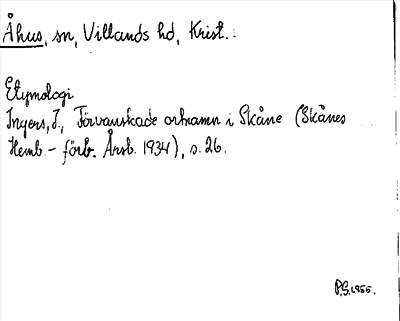 Åhus, sn, Villands hd, Krist.:
Etymologi
Ingers, I., Förvanskade ortnamn i Skåne (Skånes
Hemb.-förb. Årsb. 1934), s. 26.
P.S. 1955.